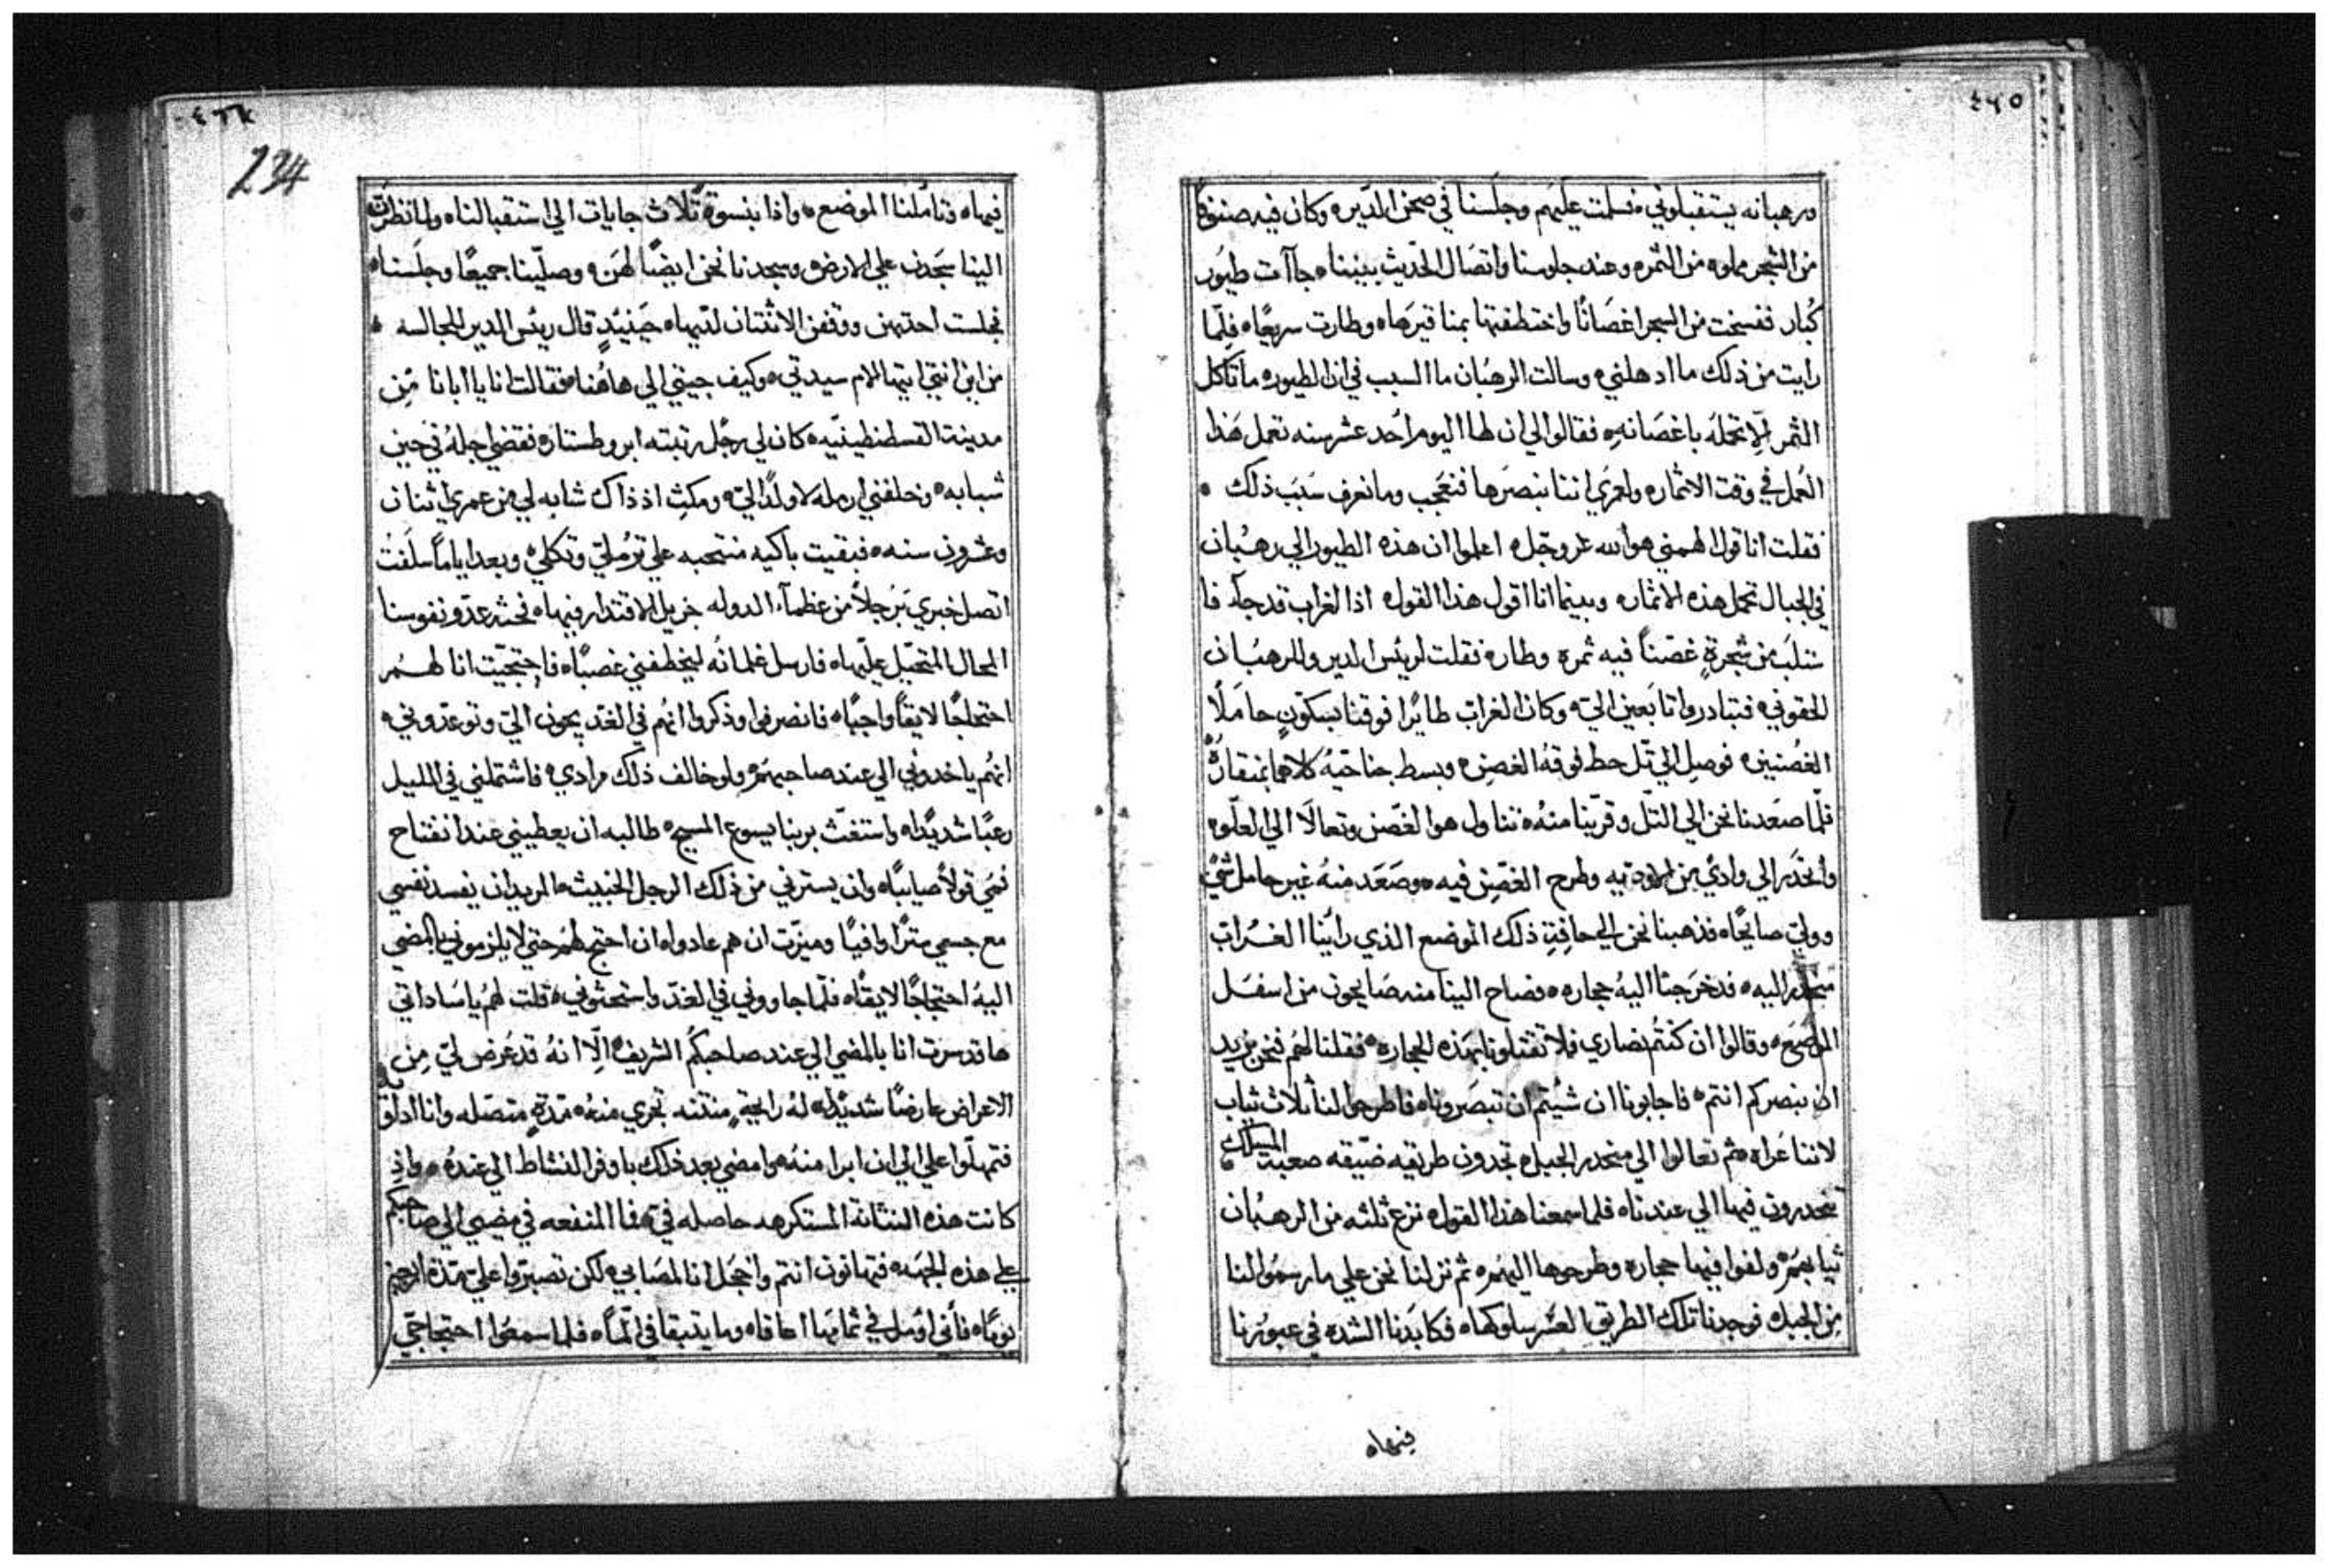 ٤٦٥
ورهبانه يستقبلوني فسلمت عليهم وجلسنا في صحن الدير وكان فيه صنوف
من الشجر مملوه من الثمره وعند جلوسنا واتصال الحديث بيننا جاآت طيور
كبار ففسخت من الشجر اغصانًا واختطفتها بمناقيرها وطارت سريعًا فلما
رايت من ذلك ما ادهلني وسالت الرهبان ما السبب في ان الطيور ما تاكل
الثمر الا تحمله باغصانه فقالوا لي ان لها اليوم احد عشر سنه تعمل هذا
العمل في وقت الاثمار ولعمري اننا نبصرها فنعجب وما نعرف سبب ذلك
فقلت انا قولا الهمني هو الله عز وجل اعلموا ان هذه الطيور الي رهبان
في الجبال تحمل هذه الاثمار وبينما انا اقول هذا القول اذا الغراب قد جآ فا
ستلب من شجرةٍ غصنًا فيه ثمره وطار فقلت لريس الدير وللرهبان
الحقوني فتبادروا تابعين الي وكان الغراب طايرًا فوقنا بسكونٍ حاملًا
الغصنين فوصل الي تل حط فوقه الغصن وبسط جناحيه كلاهما بمنقاره
فلما صعدنا نحن الي التل وقربنا منه تناول هو الغصن وتعالا الي العلو
وانحدر الي وادي من الاوديه وطرح الغصن فيه وصعد منه غير حامل شي
وولي صايحًا فذهبنا نحن الي حافة ذلك الموضع الذي راينا الغراب
منحدر اليه فدحرجنا اليه حجاره فصاح الينا منه صايحون من اسفل
الموضع وقالوا ان كنتم نصاري فلا تقتلونا بهذه الحجاره فقلنا لهم نحن نريد
ان نبصركم انتم فاجابونا ان شيتم ان تبصرونا فاطرحوا لنا ثلاث ثياب
لاننا عراه ثم تعالوا الي منحدر الجبل تجدون طريقه ضيقه صعبة المسلك
تنحدرون فيها الي عندنا فلما سمعنا هذا القول نزع ثلثه من الرهبان
ثيابهم ولفوا فيها حجاره وطرحوها اليهم ثم نزلنا نحن علي ما رسموا لنا
من الجبل فوجدنا تلك الطريق العسر سلوكها فكابدنا الشده في عبورنا
فيها
٤٦٦
234
فيها فتاملنا الموضع واذا بنسوة ثلاث جايات الي استقبالنا ولما نظرن
الينا سجدن علي الارض وسجدنا نحن ايضًا لهن وصلينا جميعًا وجلسنا
فجلست احدتهن ووقفن الاثنتان لديها حينيذٍ قال ريس الدير للجالسه
من اين انتي ايتها الام سيدتي وكيف جيتي الي هاهنا فقالت انا يا ابانا من
مدينة القسطنطينيه كان لي رجل رتبته ابروطستار فقضي اجله في حين
شبابه وخلفني ارمله لا ولدًا لي ومكث اذ ذاك شابه لي من عمري اثنان
وعشرون سنه فبقيت باكيه منتحبه علي ترملي وثكلي وبعد ايامًا سلفت
اتصل خبري برجلًا من عظمآ الدوله جزيل الاقتدار فيها فحثه عدو نفوسنا
المحال المتحيل عليها فارسل غلمانه ليخطفني غصبًا فاحتجيت انا لهم
احتجاجًا لايقًا واجبًا فانصرفوا وذكروا انهم في الغد يجون الي وتوعدوني
انهم ياخدوني الي عند صاحبهم ولو خالف ذلك مرادي فاشتملني في الليل
رعبًا شديدًا واستغثت بربنا يسوع المسيح طالبه ان يعطيني عند انفتاح
فمي قولًا صايبًا وان يسترني من ذلك الرجل الخبيث المريد ان يفسد نفسي
مع جسمي سترًا وافيًا وميزت ان هم عادوا ان احتج لهم حتي لا يلزموني بالمضي
اليه احتجاجًا لايقًا فلما جاووني في الغد واستحثوني قلت لهم يا ساداتي
ها قد سررت انا بالمضي الي عند صاحبكم الشريف الا انه قد عرض لي من
الاعراض عارضًا شديدًا له رايحةٍ منتنه تجري منه مدةٍ متصله وانا اداويه
فتمهلوا علي الي ان ابرا منه وامضي بعد ذلك باوفر النشاط الي عنده واذ
كانت هذه النتانة المستكرهه حاصله في فما المنفعه في مضيي الي صاحبكم
علي هذه الجهه فتهانون انتم وانخجل انا لمصابي لكن تصبروا علي مدة اربعين
يومًا فأني اومل في تمامها اعافا وما يتبقا في المًا فلما سمعوا احتجاجي